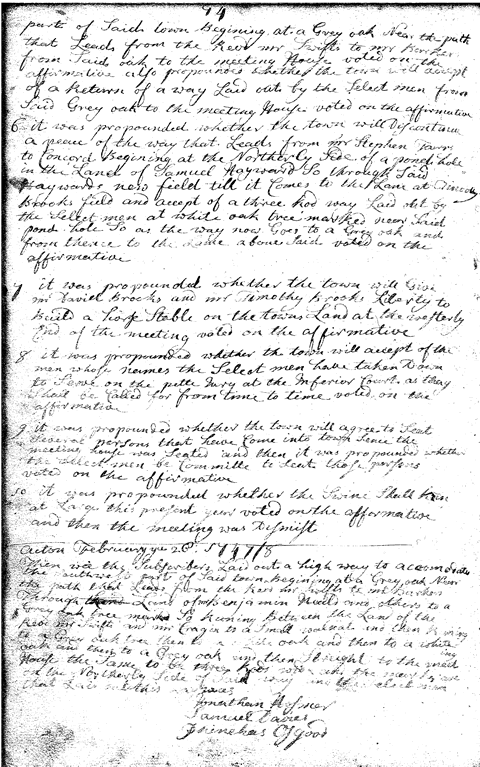 44
parts of Said town Begining at a Grey oak Near the path
that Leads from the Revd mr Swifts to mr Barker
from Said oak to the meeting House voted on the
affirmative also propounded whether the town will accept
of a Return of a way Laid out by the Select men from
Said Grey oak to the meeting House voted on the affirmative
6 it was propounded whether the town will Discontinue
a peace of the way that Leads from mr Stephen Farrs
to Concord Begining at the Northerly Side of a pond hole
in the Land of Samuel Hayward So through Said
Haywards new field till it Comes to the Lane at Timothy
Brooks field and accept of a three Rod way Laid out by
the Select men at white oak tree marked near Said
pond hole So as the way now Goes to a Grey oak and
from thence to the Lane above Said voted on the
affirmative
7 it was propounded whether the town will Give
mr David Brooks and mr Timothy Brooks Liberty to
Build a horse Stable on the towns Land at the westerly
End of the meeting voted on the affirmative
8 it was propounded whether the town will accept of the
men whose names the Select men have taken Down
to Serve on the petty Jury at the Inferior Court as they
Shall be Called for from time to time voted on the
affirmative
9 it was propounded whether the town will agree to Seat
Several persons that have Come into town Sence the
meeting house was Seated and then it was propounded whether
the Select men be Committe to Seat those persons
voted on the affirmative
10 it was propounded whether the Swine Shall Run
at Large this present year voted on the affirmative
and then the meeting was Dismist
Acton February ye 1747/8
Then we the Subscribers Laid out a high way to accomodate
the Southwest part of Said town Begining at a Grey oak Near
the path that Leads from the Revd mr Swifts to mr Barkers
Through Land of mr Benjamin and others to a
Grey oak tree So Runing Between the Land of the
Revd mr Swift and mr to a Small walnut and then Runing
to a Grey oak tree then to a white oak and then to a white
oak and then to a Grey oak and then Straight to the meeting
House the Same to be three Rods wide and the marks are
on the Northerly Side of Said way
Jonathan Hosmer
Samuel Davies
Phinehas Osgood